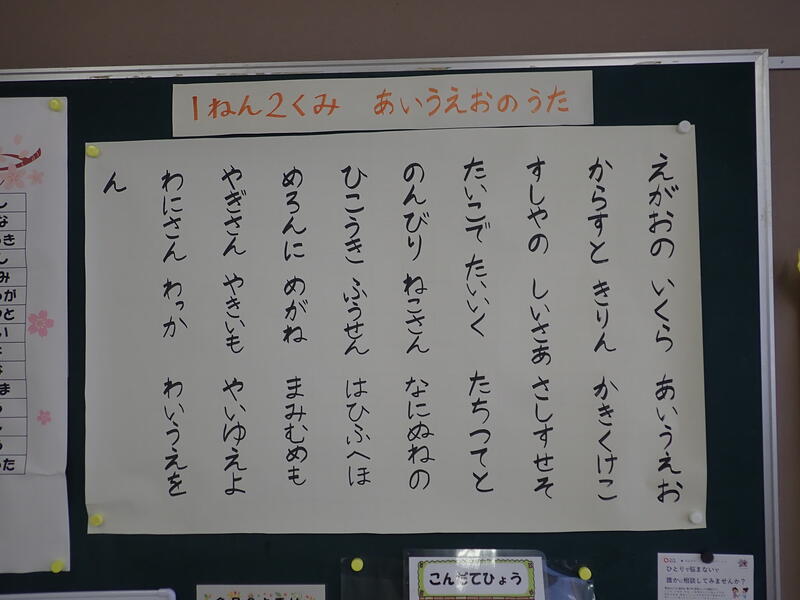 1ねん2くみ あいうえおのうた
えがおの いくら あいうえお
からすと きりん かきくけこ
すしやの しいさあ さしすせそ
たいこで たいいく たちつてと
のんびり ねこさん なにぬねの
ひこうき ふうせん はひふへほ
めろんに めがね まみむめも
やぎさん やきいも やいゆえよ
わにさん わっか わいうえを
ん
こんだてひょう
ひとりで悩まないで
誰かに相談してみませんか?